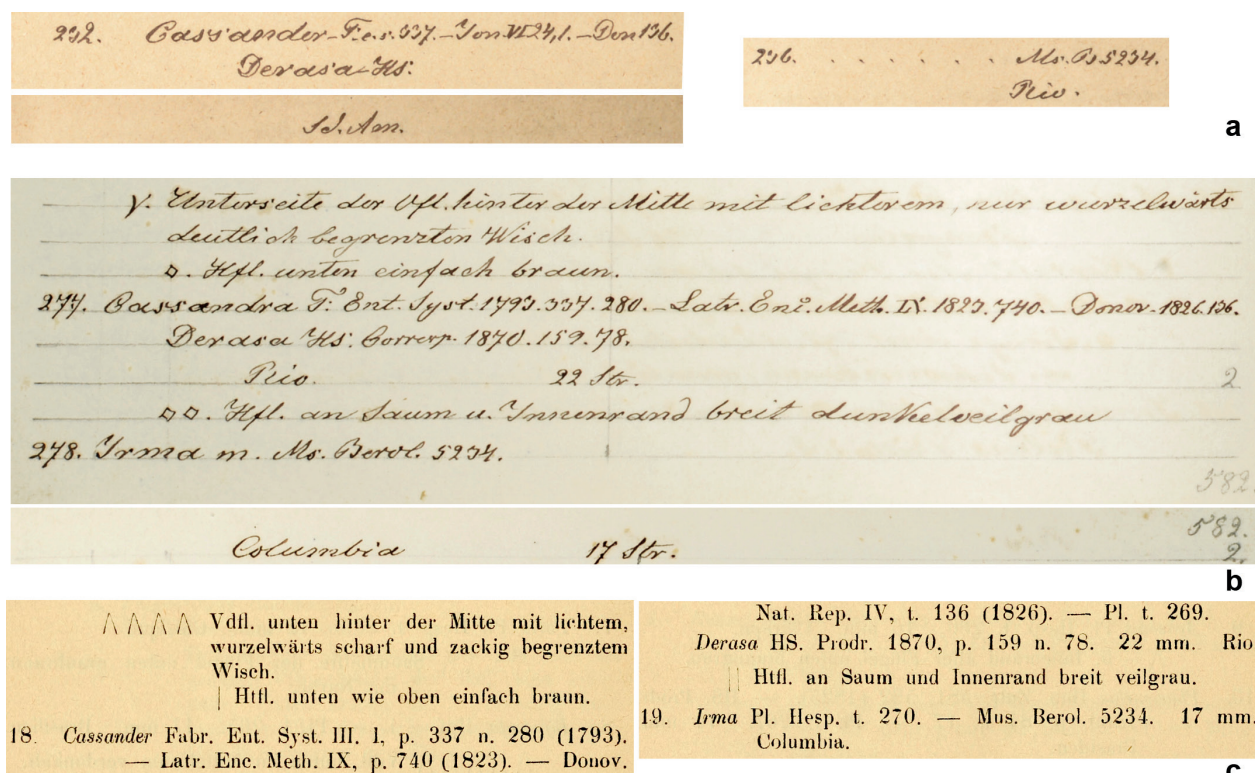 232. Cassander F.e.s. 337. – Jon VI 24,1. – Don 136.
Derasa Hs.
Sd. Am.
236. . . . . . . Ms. B 5234.
Rio.
a
γ. Unterseite der Vfl. hinter der Mitte mit lichterem, nur wurzelwärts
deutlich begrenzten Wisch.
¤. Hfl. unten einfach braun.
277. Cassandra F. Ent. Syst. 1793. 337. 280. – Latr. Enc. Meth. IX. 1823. 740. – Donov. 1826. 136.
Derasa HS. Corresp. 1870. 159. 78.
Rio. 22 Str. 2
¤¤. Hfl. an Saum u. Innenrand breit dunkelveilgrau
278. Irma m. Ms. Berol. 5234.
582.
582.
Columbia 17 Str. 2.
b
Λ Λ Λ Λ Vdfl. unten hinter der Mitte mit lichtem,
wurzelwärts scharf und zackig begrenztem
Wisch.
| Htfl. unten wie oben einfach braun.
18. Cassander Fabr. Ent. Syst. III. I, p. 337 n. 280 (1793).
— Latr. Enc. Meth. IX, p. 740 (1823). — Donov.
Nat. Rep. IV, t. 136 (1826). — Pl. t. 269.
Derasa HS. Prodr. 1870, p. 159 n. 78. 22 mm. Rio
|| Htfl. an Saum und Innenrand breit veilgrau.
19. Irma Pl. Hesp. t. 270. — Mus. Berol. 5234. 17 mm.
Columbia.
c